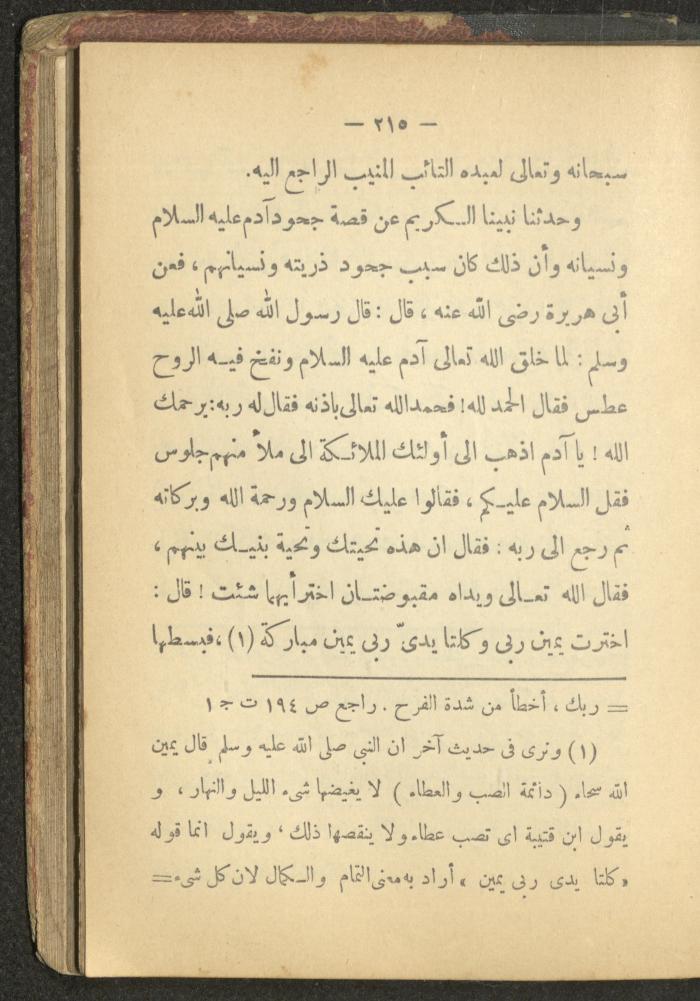 — ٢١٥ —
سبحانه وتعالى لعبده التائب المنيب الراجع اليه.
وحدثنا نبينا الكريم عن قصة جحود آدم عليه السلام
ونسيانه وأن ذلك كان سبب جحود ذريته ونسيانهم ، فعن
أبى هريرة رضى الله عنه ، قال : قال رسول الله صلى الله عليه
وسلم : لما خلق الله تعالى آدم عليه السلام ونفخ فيه الروح
عطس فقال الحمد لله! فحمد الله تعالى باذنه فقال له ربه: يرحمك
الله ! يا آدم اذهب الى أولئك الملائكة الى ملأ منهم جلوس
فقل السلام عليكم ، فقالوا عليك السلام ورحمة الله وبركاته
ثم رجع الى ربه : فقال ان هذه تحيتك وتحية بنيك بينهم ،
فقال الله تعالى ويداه مقبوضتان اختر أيهما شئت ! قال :
اخترت يمين ربى وكلتا يدىّ ربى يمين مباركة (١) ، فبسطها
= ربك ، أخطأ من شدة الفرح . راجع ص ١٩٤ ت ج ١
(١) ونرى فى حديث آخر ان النبى صلى الله عليه وسلم قال يمين
الله سحاء ( دائمة الصب والعطاء ) لا يغيضها شىء الليل والنهار ، و
يقول ابن قتيبة اى تصب عطاء ولا ينقصها ذلك ، ويقول انما قوله
« كلتا يدى ربى يمين » أراد به معنى التمام والكمال لان كل شىء =